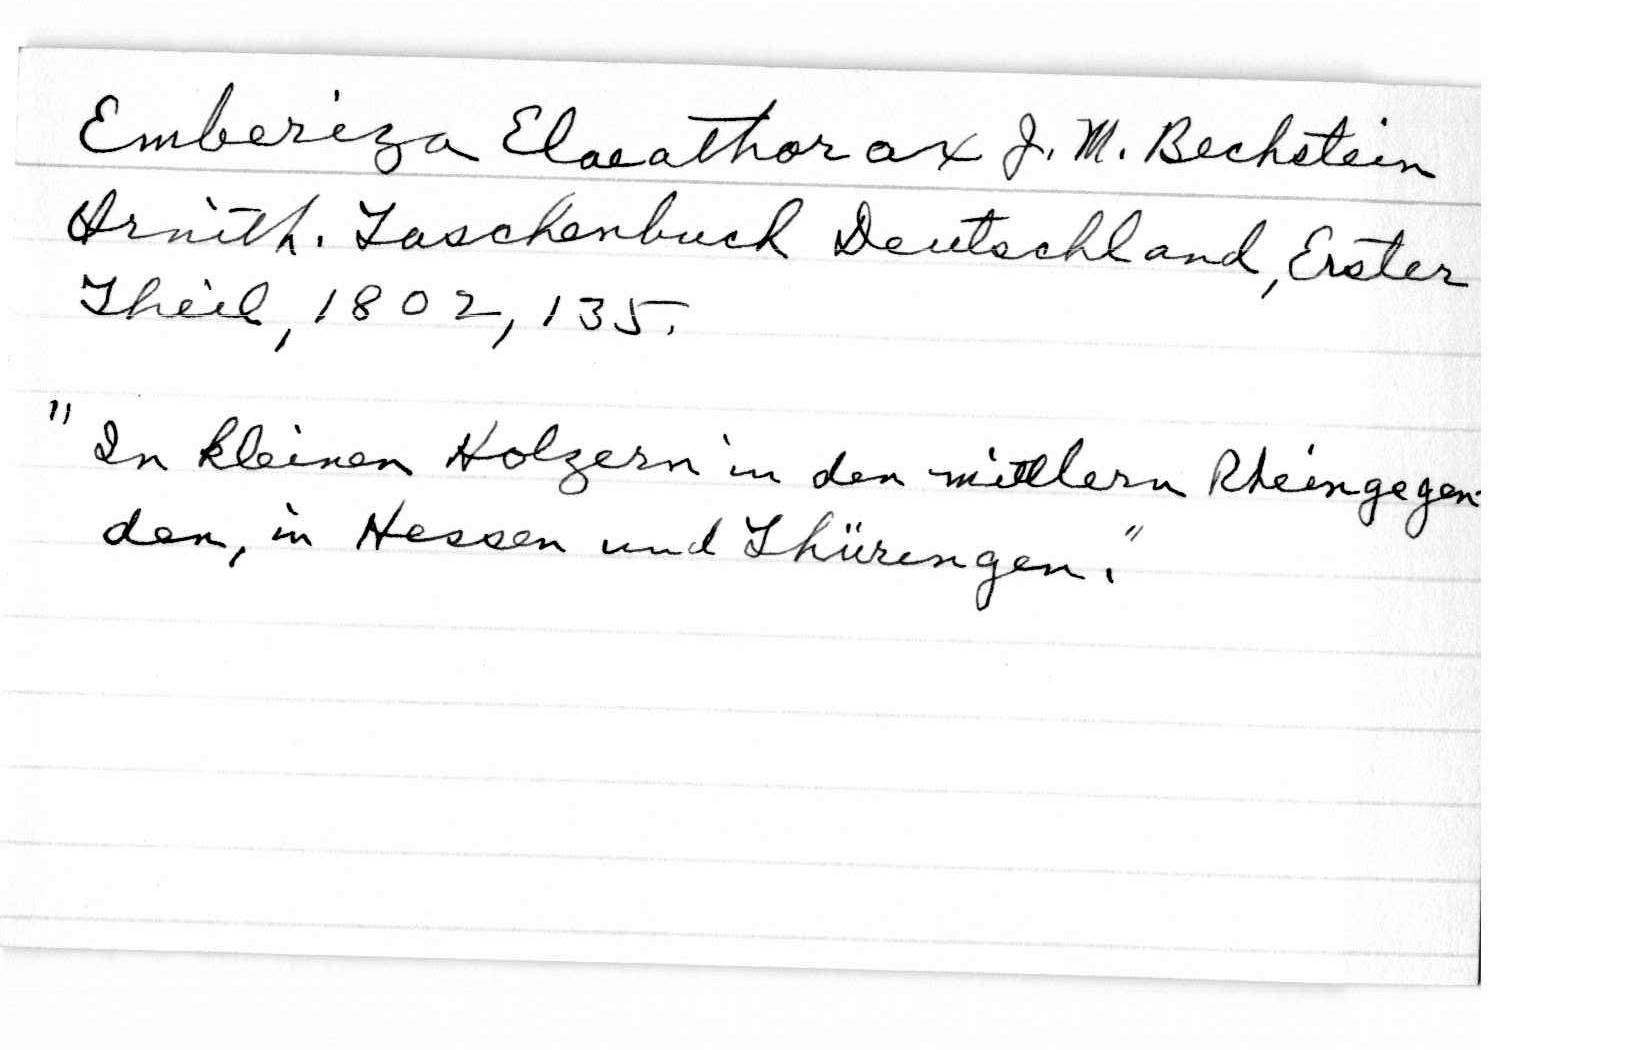 Emberiza Elaeathorax J. M. Bechstein
Ornith. Taschenbuch Deutschland, Erster
Theil, 1802, 135.
"In kleinen Holzern in den mittlern Rheingegen-
den, in Hessen und Thüringen."